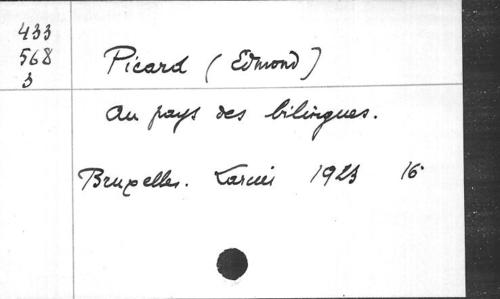 433
568
3
Picard (Edmond)
Au pays des bilingues.
Bruxelles. Larcier 1923 16°